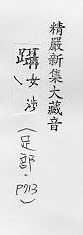 精嚴新集大藏音
躡 女涉
（足部·P713）